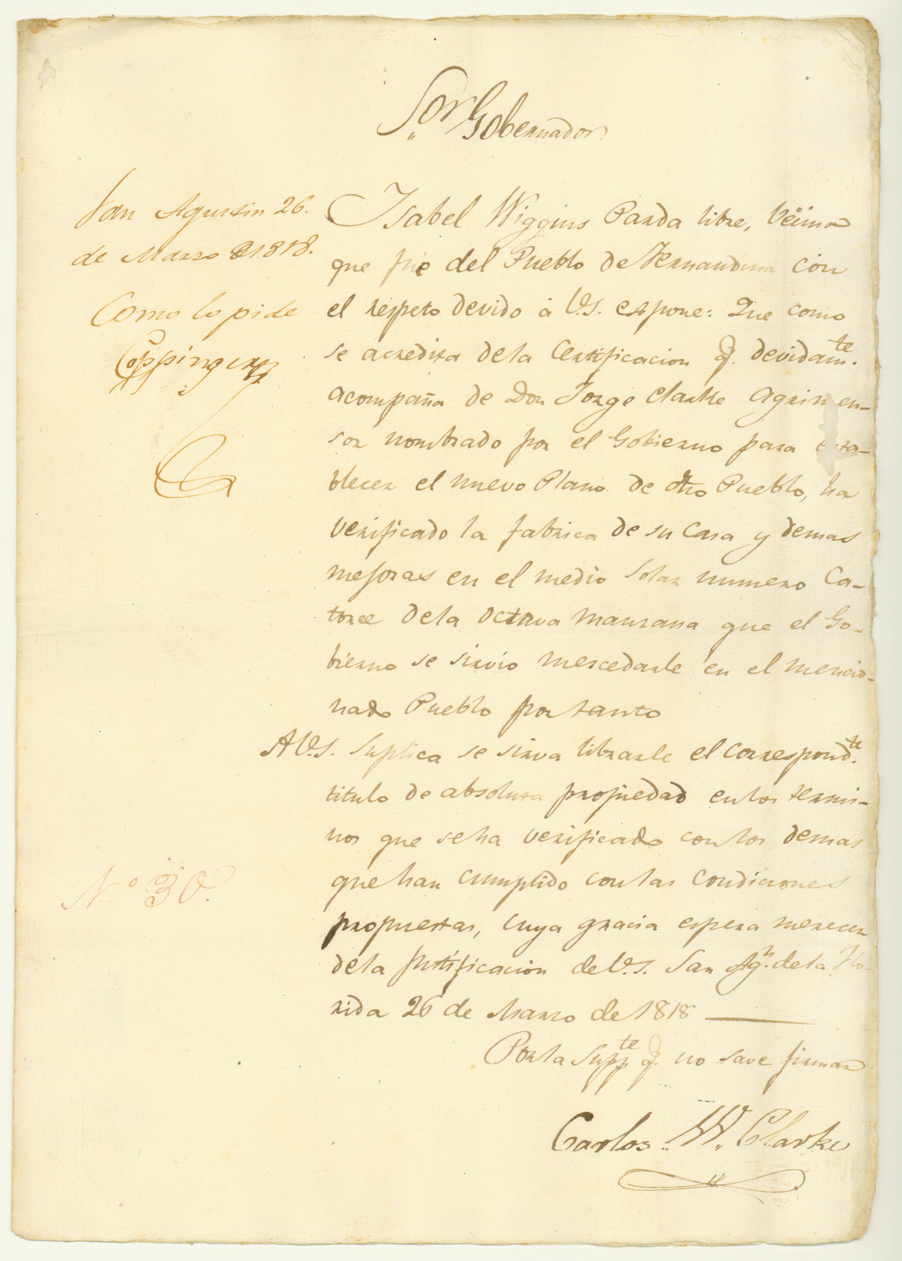 Sor Gobernador
San Agustin 26.
de Marzo de 1818.
Como lo pide
Coppinger
Isabel Wiggins Parda libre, Veeina
que fue del Pueblo de Fernandina con
el respeto devido á V.S. expone: Que como
se acredita de la Certificacion q. devidamte.
acompaña de Don Jorge Clarke Agrimen-
sor nombrado por el Gobierno para esta-
blecer el nuevo Plano de dho Pueblo, ha
verificado la fabrica de su Casa y demas
mejoras en el medio Solar numero Ca-
torce de la octava Manzana que el Go-
bierno se sirvio mercedarle en el mencio-
nado Pueblo por tanto
A V.S. Suplica se sirva librarle el correspondte.
titulo de absoluta propiedad en los termi-
nos que se ha verificado con los demas
que han cumplido con las condiciones
propuestas, cuya gracia espera merecer
de la Justificacion de V.S. San Agn. de la Flo-
rida 26 de Marzo de 1818
No. 30.
Por la Suppte q. no save firmar
Carlos W. Clarke